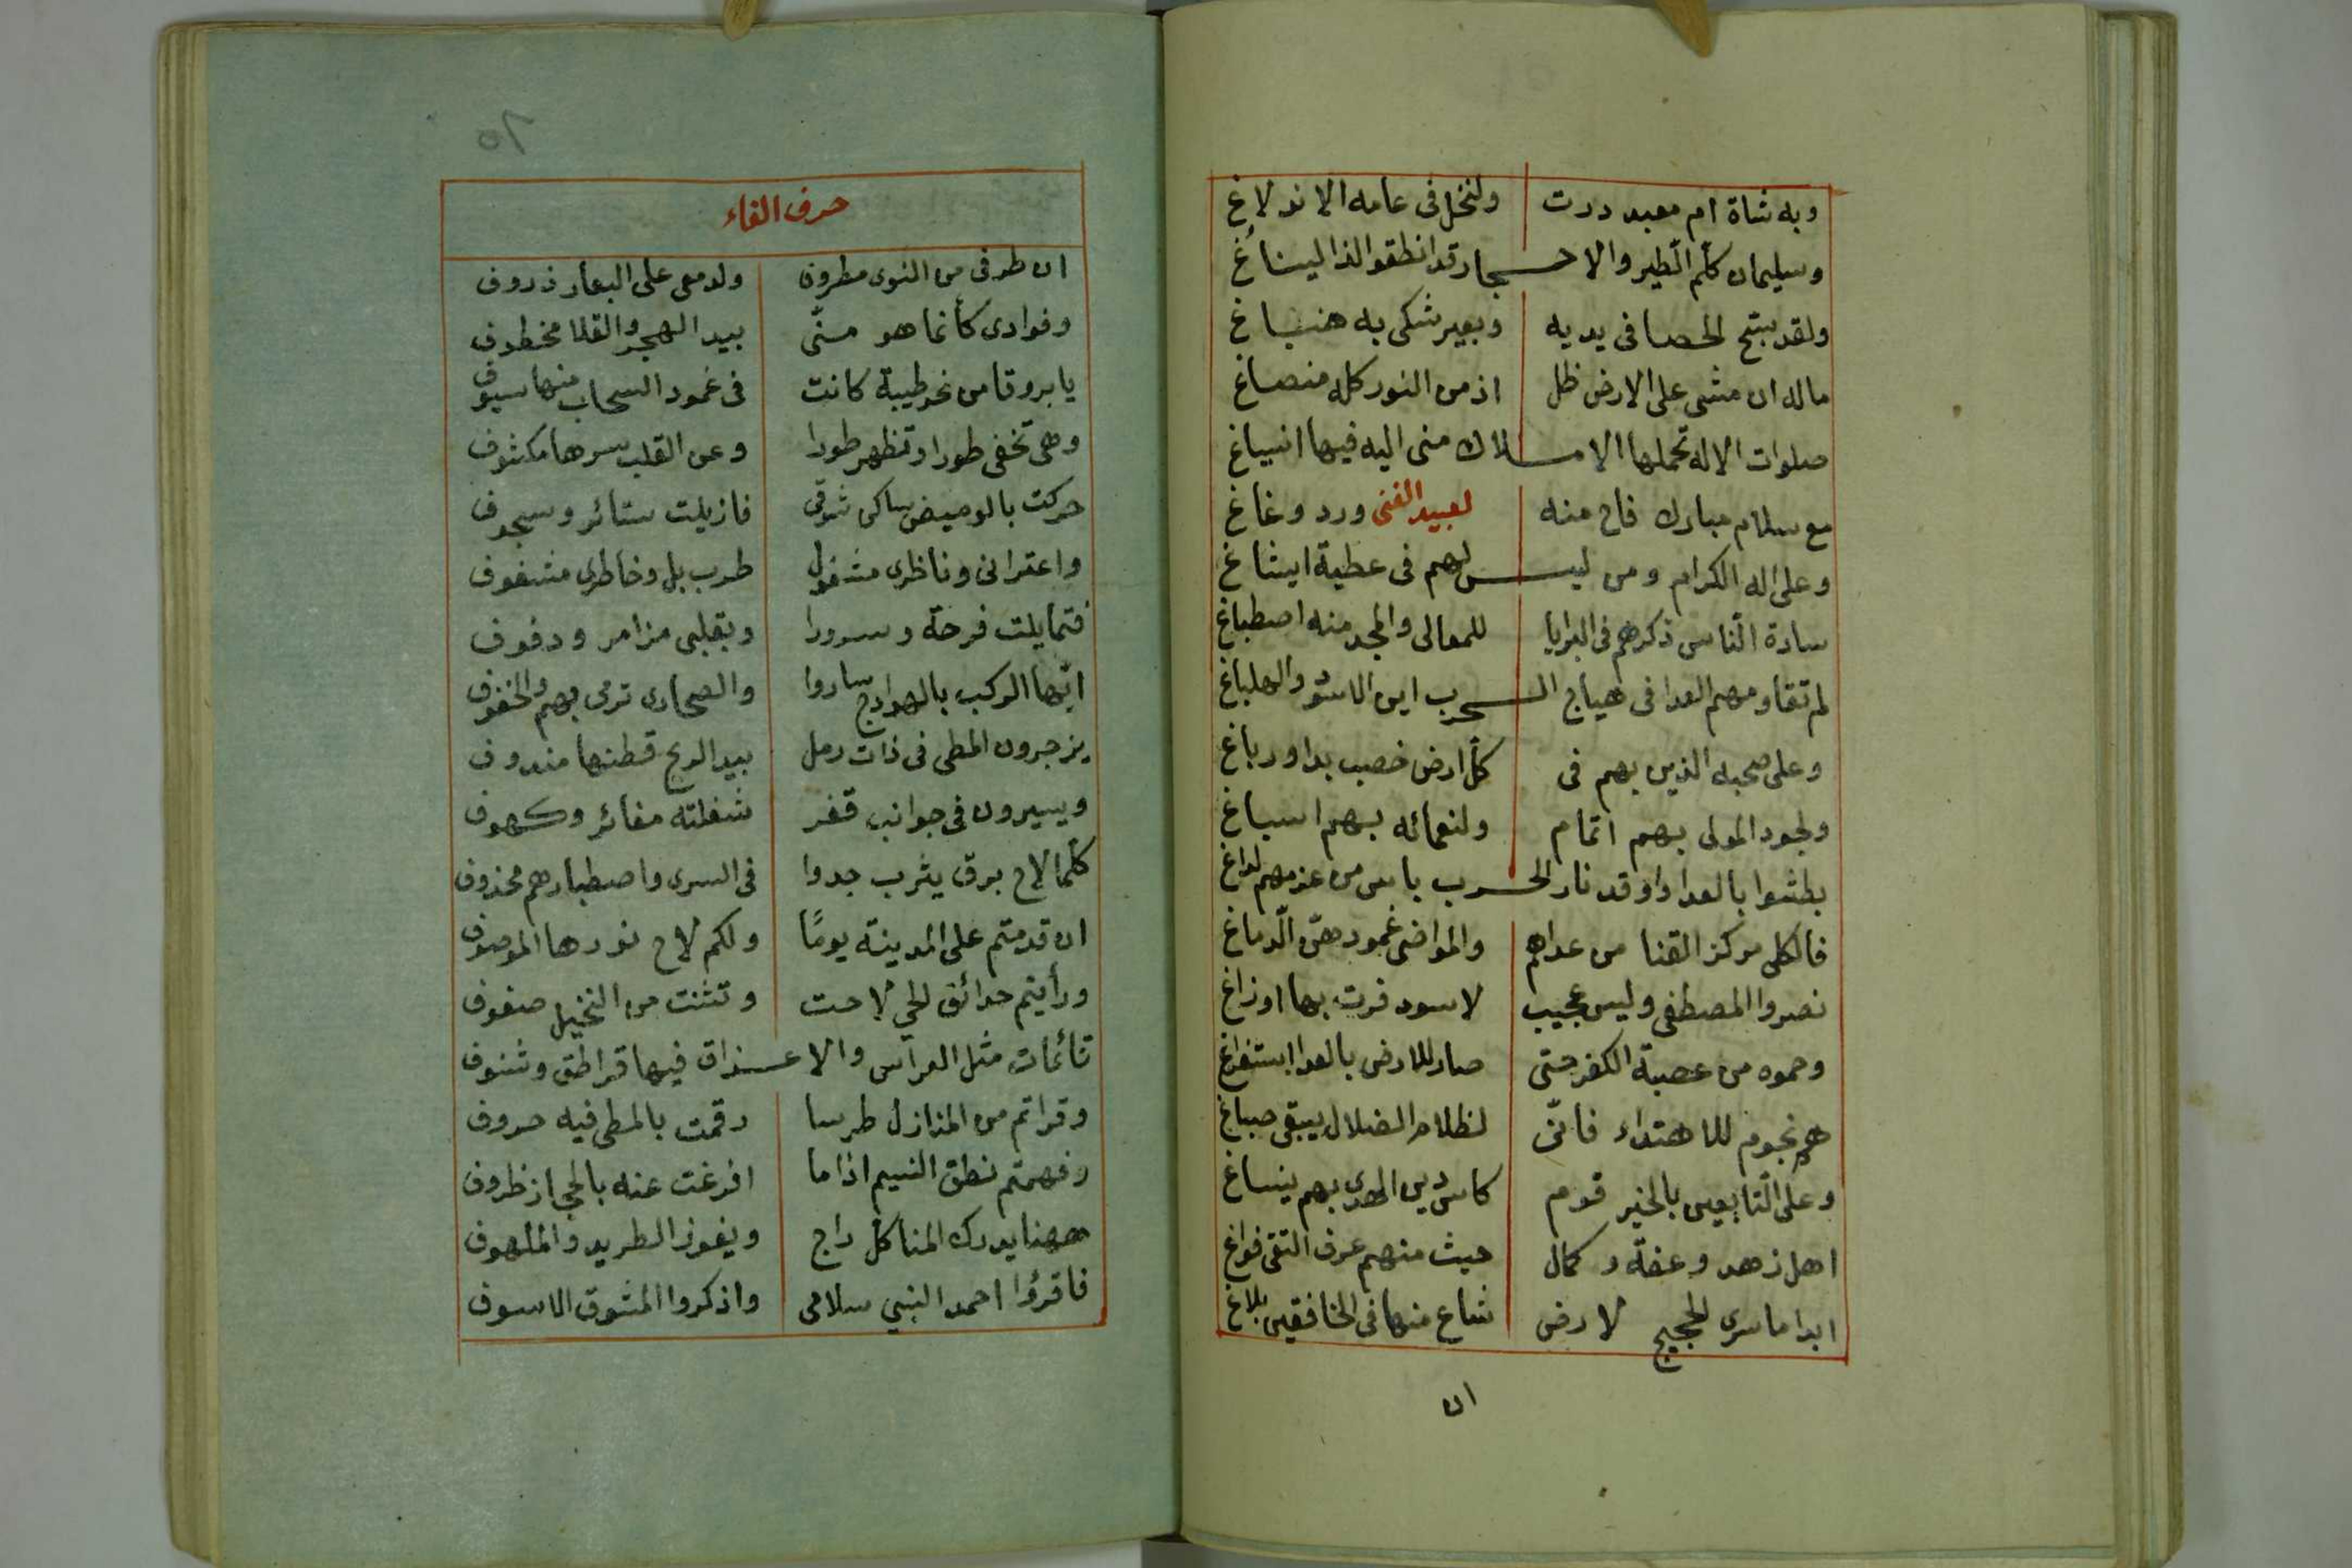 وبه شاة ام معبد درت ولنخل في عامه الاند لاغ
وسليمان كلم الطير والاحجار قد انطقوا لذا ليناغ
ولقد سبح الحصا في يديه وبعير شكى به
ماله ان مشى على الارض ظل اذ من النور كله منصاغ
صلوات الاله تحملها الاملاك منى اليه فيها انسياغ
مع سلام مبارك فاح منه لعبيد الغنى ورد وغاغ
وعلى اله الكرام ومن ليس لهم في عطية ايشاغ
سادة الناس ذكرهم في البرايا للمعالى والمجد منه اصطباغ
لم تقاومهم العدا في هياج الحرب اين الاسود والهلباغ
وعلى صحبه الذين بهم في كل ارض خصب بدا ورباغ
ولجود المولى بهم اتمام ولنعمائه بهم اسباغ
بطشوا بالعدا واوقد نار الحرب باس من عزمهم لداغ
فالكلى مركز القنا من عداهم والمواضى غمودهن الدماغ
نصروا المصطفى وليس عجيب لاسود فرت بها اوزاغ
وحموه من عصبة الكفر حتى صار للارض بالعدا استفراغ
هم نجوم للاهتداء فانى لظلام الضلال يبقى صباغ
وعلى التابعين بالخير قوم كاس دين الهدى بهم ينساغ
اهل زهد وعفة وكمال حيث منهم عرف التقى فواغ
ابدا ما سرى الحجيج لارض شاع منها في الخافقين بلاغ
ان
٦٥
حرف الفاء
ان طرفى من النوى مطروف ولدمعى على البعاد ذروف
وفوادى كأنما هو منى بيد الهجر والقلا مخطوف
يا بروقا من نحو طيبة كانت في غمود السحاب منها سيوف
وهى تخفى طورا وتظهر طورا وعن القلب سرها مكشوف
حركت بالوميض ساكن شوقى فازيلت ستائر وسجوف
واعترانى وناظرى مشغول طرب بل وخاطرى مشغوف
فتمايلت فرحة وسرورا وبقلبى مزامر ودفوف
ايها الركب بالهوادج ساروا والصحارى ترمى بهم والخفوف
يزجرون المطى في ذات رمل بيد الريح قطنها مندوف
ويسيرون في جوانب قفر شغلته مغائر وكهوف
كلما لاح برق يثرب جدوا في السرى واصطبارهم محذوف
ان قدمتم على المدينة يومًا ولكم لاح نورها الموصوف
ورأيتم حدائق الحي لاحت وتثنت من النخيل صفوف
قائمات مثل العرائس والاعذاق فيها قراطق وشنوف
وقراتم من المنازل طرسا رقمت بالمطى فيه حروف
وفهمتم نطق النسيم اذا ما افرغت عنه بالحجاز ظروف
ههنا يدرك المنا كل راج ويفوز الطريد والملهوف
فاقرؤا احمد النبي سلامى واذكروا المشوق الاسوف